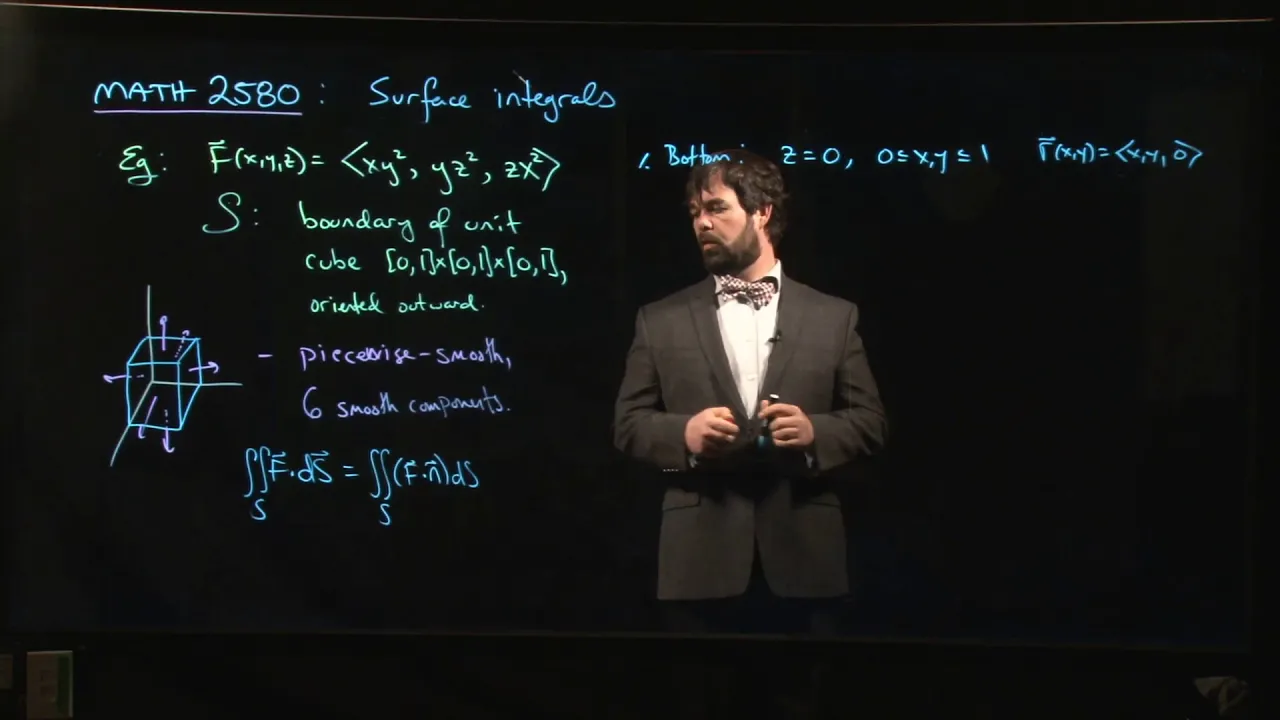 MATH 2580 : Surface integrals
Eg: F⃗(x,y,z) = ⟨xy², yz², zx²⟩
S: boundary of unit
cube [0,1]×[0,1]×[0,1],
oriented outward.
- piecewise-smooth,
6 smooth components.
∬_S F⃗·dS⃗ = ∬_S (F⃗·n⃗)dS
1. Bottom: z=0, 0≤x,y≤1 r⃗(x,y)=⟨x,y,0⟩